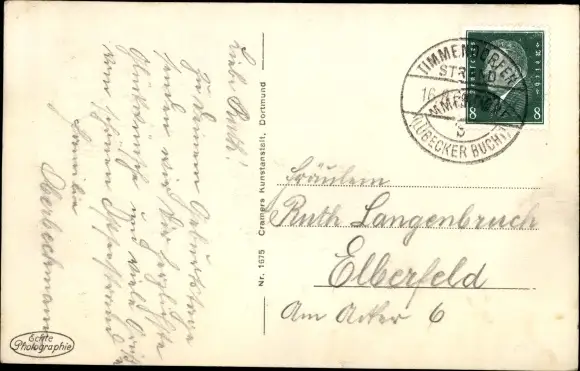 Liebe Ruth!
Zu Deinem Geburtstage
senden wir Dir herzlichste
Glückwünsche und viele Grüße
vom schönen Ostseestrand
Familie
Oberbeckmann
Echte
Photographie
Nr. 1675 Cramers Kunstanstalt, Dortmund
TIMMENDORFER
STRAND
(LÜBECKER BUCHT)
8 8
Fräulein
Ruth Langenbruch
Elberfeld
Am Acker 6